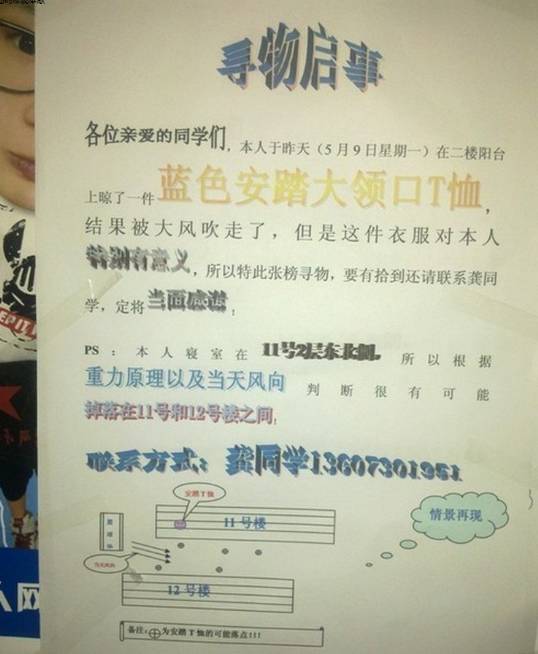 寻物启事
各位亲爱的同学们，本人于昨天（5月9日星期一）在二楼阳台
上晾了一件蓝色安踏大领口T恤，
结果被大风吹走了，但是这件衣服对本人
特别有意义，所以特此张榜寻物，要有拾到还请联系龚同
学，定将当面感谢；
PS：本人寝室在11号2层东北侧。所以根据
重力原理以及当天风向判断很有可能
掉落在11号和12号楼之间；
联系方式：龚同学13607301951
安踏T恤
11号楼
情景再现
当天风向
12号楼
备注：为安踏T恤的可能落点!!!
网